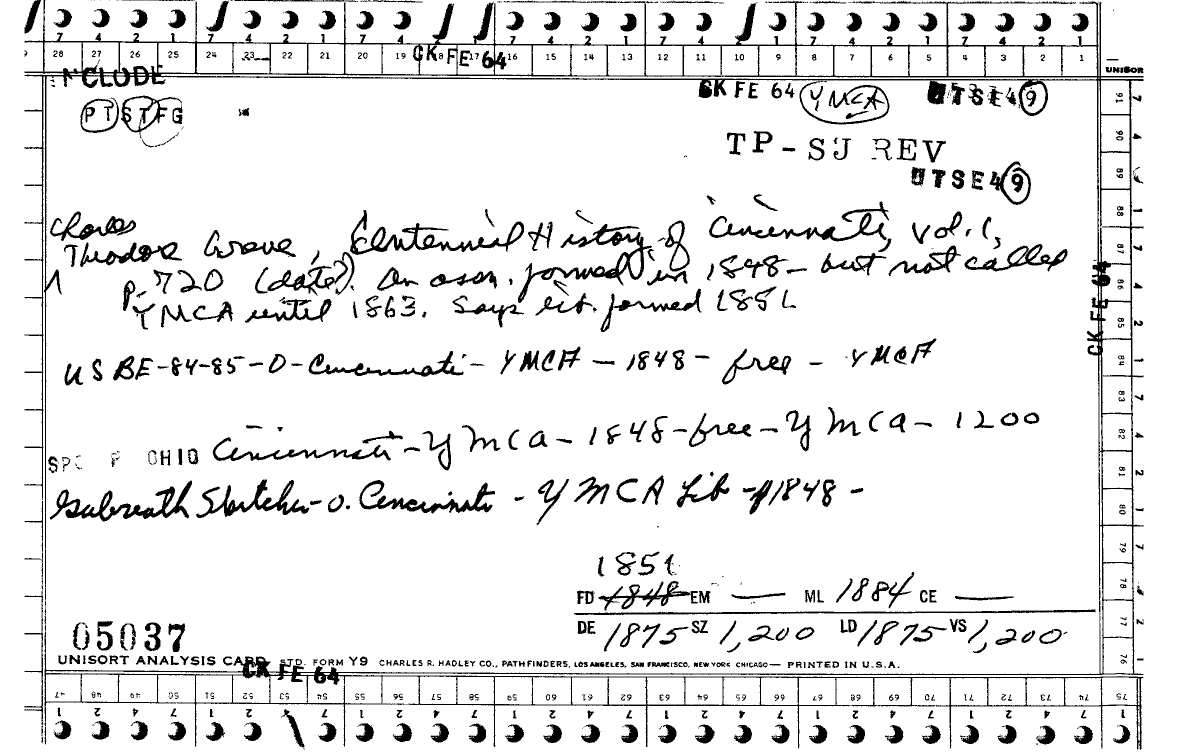 7 4 2 1 7 4 2 1 7 4 2 1 7 4 2 1 7 4 2 1 7 4 2 1 7 4 2 1
28 27 26 25 24 23 22 21 20 19 18 17 16 15 14 13 12 11 10 9 8 7 6 5 4 3 2 1
CK FE 64
UNISOR
NCLUDE
CK FE 64 YMCA UTSE49
PT STFG
TP-SJ REV
UTSE49
Charles
Theodore Greve, Centennial History of Cincinnati, Vol. 1,
p. 720 (date?). An assn. formed in 1848 - but not called
YMCA until 1863. Says lib. formed 1851
CK FE 64
US BE-84-85-O-Cincinnati - YMCA - 1848 - free - YMCA
SPC F OHIO Cincinnati - YMCA - 1848 - free - YMCA - 1200
Galbreath Sketches - O. Cincinnati - YMCA Lib - 1848 -
1851
FD 1848 EM — ML 1884 CE —
DE 1875 SZ 1,200 LD 1875 VS 1,200
05037
UNISORT ANALYSIS CARD STD. FORM Y9 CHARLES R. HADLEY CO., PATHFINDERS, LOS ANGELES, SAN FRANCISCO, NEW YORK CHICAGO — PRINTED IN U.S.A.
CK FE 64
91 90 89 88 87 86 85 84 83 82 81 80 79 78 77 76
47 48 49 50 51 52 53 54 55 56 57 58 59 60 61 62 63 64 65 66 67 68 69 70 71 72 73 74 75
1 2 4 7 1 2 4 7 1 2 4 7 1 2 4 7 1 2 4 7 1 2 4 7 1 2 4 7 1